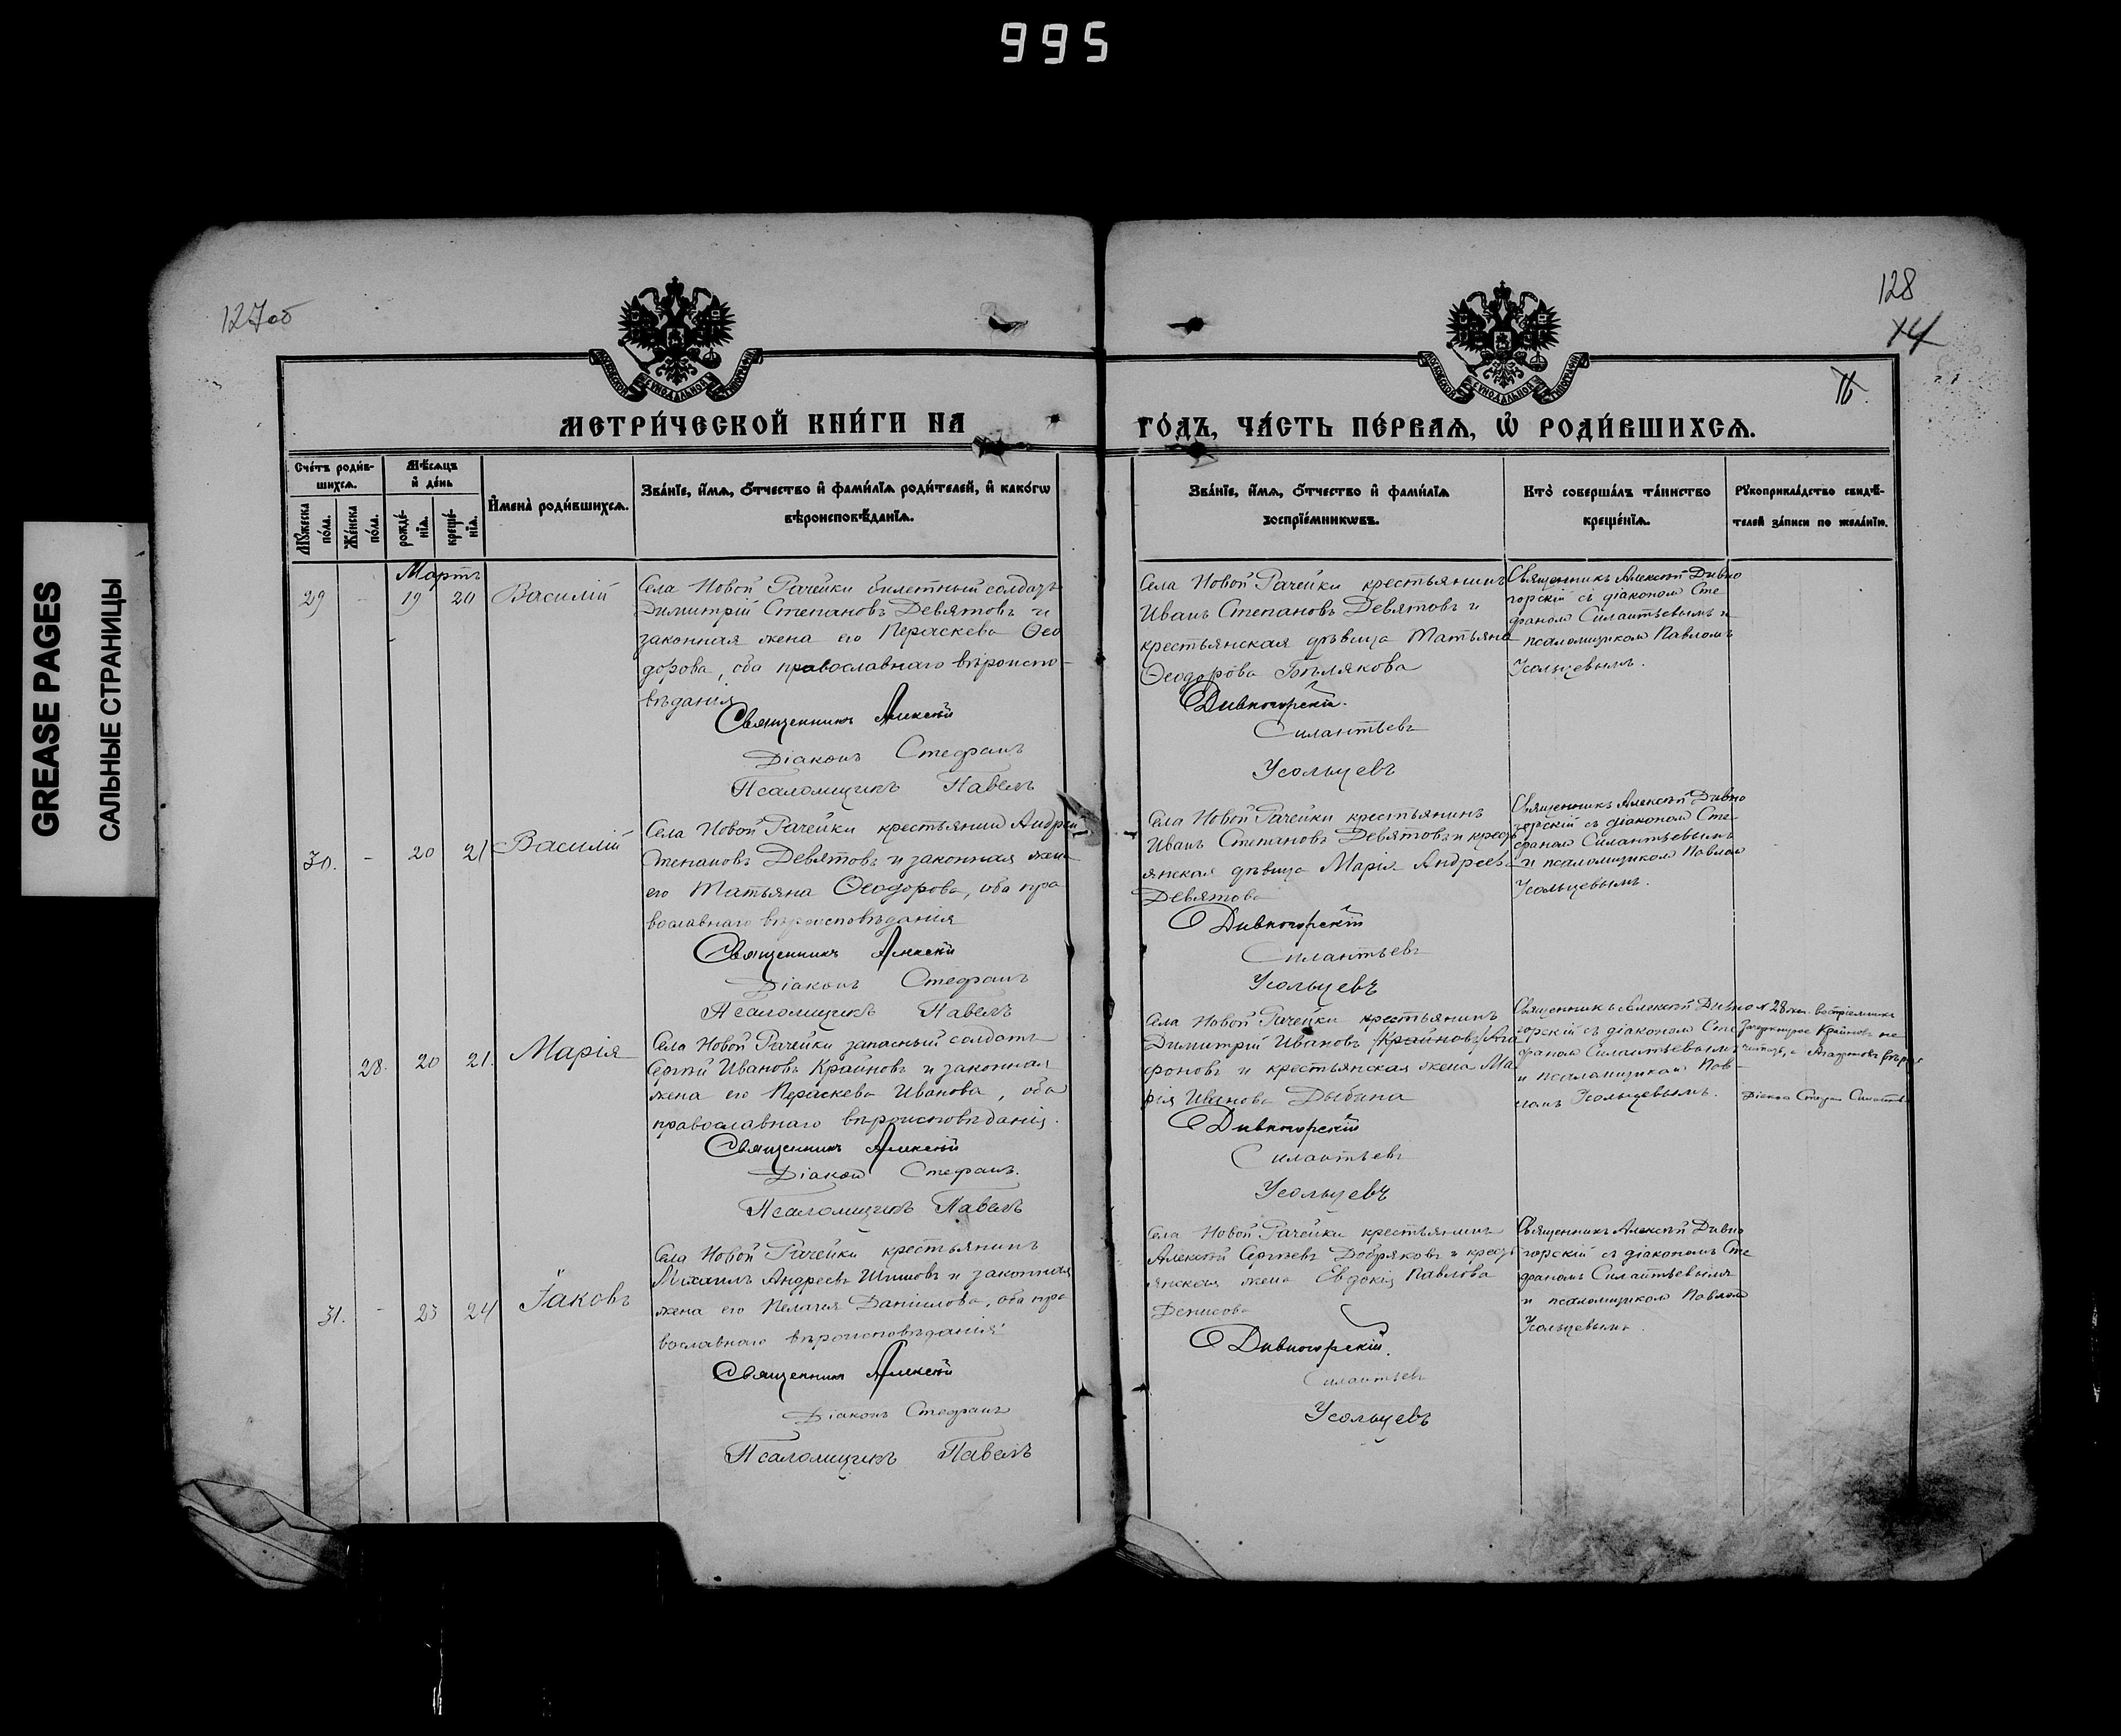 995
GREASE PAGES
САЛЬНЫЕ СТРАНИЦЫ
127об
128
14
МЕТРИ́ЧЕСКОЙ КНИ́ГИ НА
ГО́ДЪ, ЧА́СТЬ ПЕ́РВАѦ, Ѡ҆ РОДИ́ВШИХСѦ.
Сче́тъ роди́в-
шихсѧ.
Мѣ́сѧцъ
и҆ де́нь
Мꙋ́жеска
по́ла.
Же́нска
по́ла.
рожде́-
нїѧ.
креще́-
нїѧ.
И҆мена̀ роди́вшихсѧ.
Зва́нїе, и҆́мѧ, ѻ҆́тчество и҆ фамилїѧ роди́телей, и҆ како́гѡ
вѣроисповѣ́данїѧ.
Зва́нїе, и҆́мѧ, ѻ҆́тчество и҆ фами́лїѧ
воспрїе́мникѡвъ.
Кто̀ соверша́лъ та́инство
креще́нїѧ.
Рꙋкоприкла́дство свидѣ́-
телей за́писи по жела́нїю.
Мартъ
29
-
19
20
Василій
Села Новой Рачейки билетный солдатъ
Димитрій Степановъ Девятовъ и
законная жена его Параскева Ѳео
дорова, оба православнаго вѣроиспо-
вѣданія
Священникъ Алексій
Діаконъ Стефанъ
Псаломщикъ Павелъ
Села Новой Рачейки крестьянинъ
Иванъ Степановъ Девятовъ и
крестьянская дѣвица Татьяна
Ѳеодорова Бѣлякова
Дивногорскій.
Силантьевъ
Усольцевъ
Священникъ Алексій Дивно
горскій съ діакономъ Сте
фаномъ Силантьевымъ и
псаломщикомъ Павломъ
Усольцевымъ.
30.
-
20
21
Василій
Села Новой Рачейки крестьянинъ Андрей
Степановъ Девятовъ и законная жена
его Татьяна Ѳеодорова, оба пра
вославнаго вѣроисповѣданія
Священникъ Алексій
Діаконъ Стефанъ
Псаломщикъ Павелъ
Села Новой Рачейки крестьянинъ
Иванъ Степановъ Девятовъ и кресть
янская дѣвица Марія Андреева
Девятова
Дивногорскій
Силантьевъ
Усольцевъ
Священникъ Алексій Дивно
горскій съ діакономъ Сте-
фаномъ Силантьевымъ
и псаломщикомъ Павломъ
Усольцевымъ.
28.
20
21.
Марія
Села Новой Рачейки запасный солдатъ
Сергѣй Ивановъ Крайновъ и законная
жена его Параскева Иванова, оба
православнаго вѣроисповѣданія.
Священникъ Алексій
Діаконъ Стефанъ.
Псаломщикъ Павелъ
Села Новой Рачейки крестьянинъ
Димитрій Ивановъ Крайновъ Ага
фоновъ и крестьянская жена Ма
рія Иванова Дыбина
Дивногорскій
Силантьевъ
Усольцевъ
Священникъ Алексій Дивно
горскій съ діакономъ Сте
фаномъ Силантьевымъ
и псаломщикомъ Пав-
ломъ Усольцевымъ.
28 воспріемника
зачеркнутое Крайновъ не
читать, а Агафоновъ
Діаконъ Стефанъ
31.
-
23
24
Іаковъ
Села Новой Рачейки крестьянинъ
Михаилъ Андреевъ Шишовъ и законная
жена его Пелагея Даніилова, оба пра
вославнаго вѣроисповѣданія.
Священникъ Алексій
Діаконъ Стефанъ
Псаломщикъ Павелъ
Села Новой Рачейки крестьянинъ
Алексій Сергѣевъ Добряковъ и кресть
янская жена Евдокія Павлова
Денисова
Дивногорскій.
Силантьевъ
Усольцевъ
Священникъ Алексѣй Дивно
горскій съ діакономъ Сте
фаномъ Силантьевымъ
и псаломщикомъ Павломъ
Усольцевымъ.